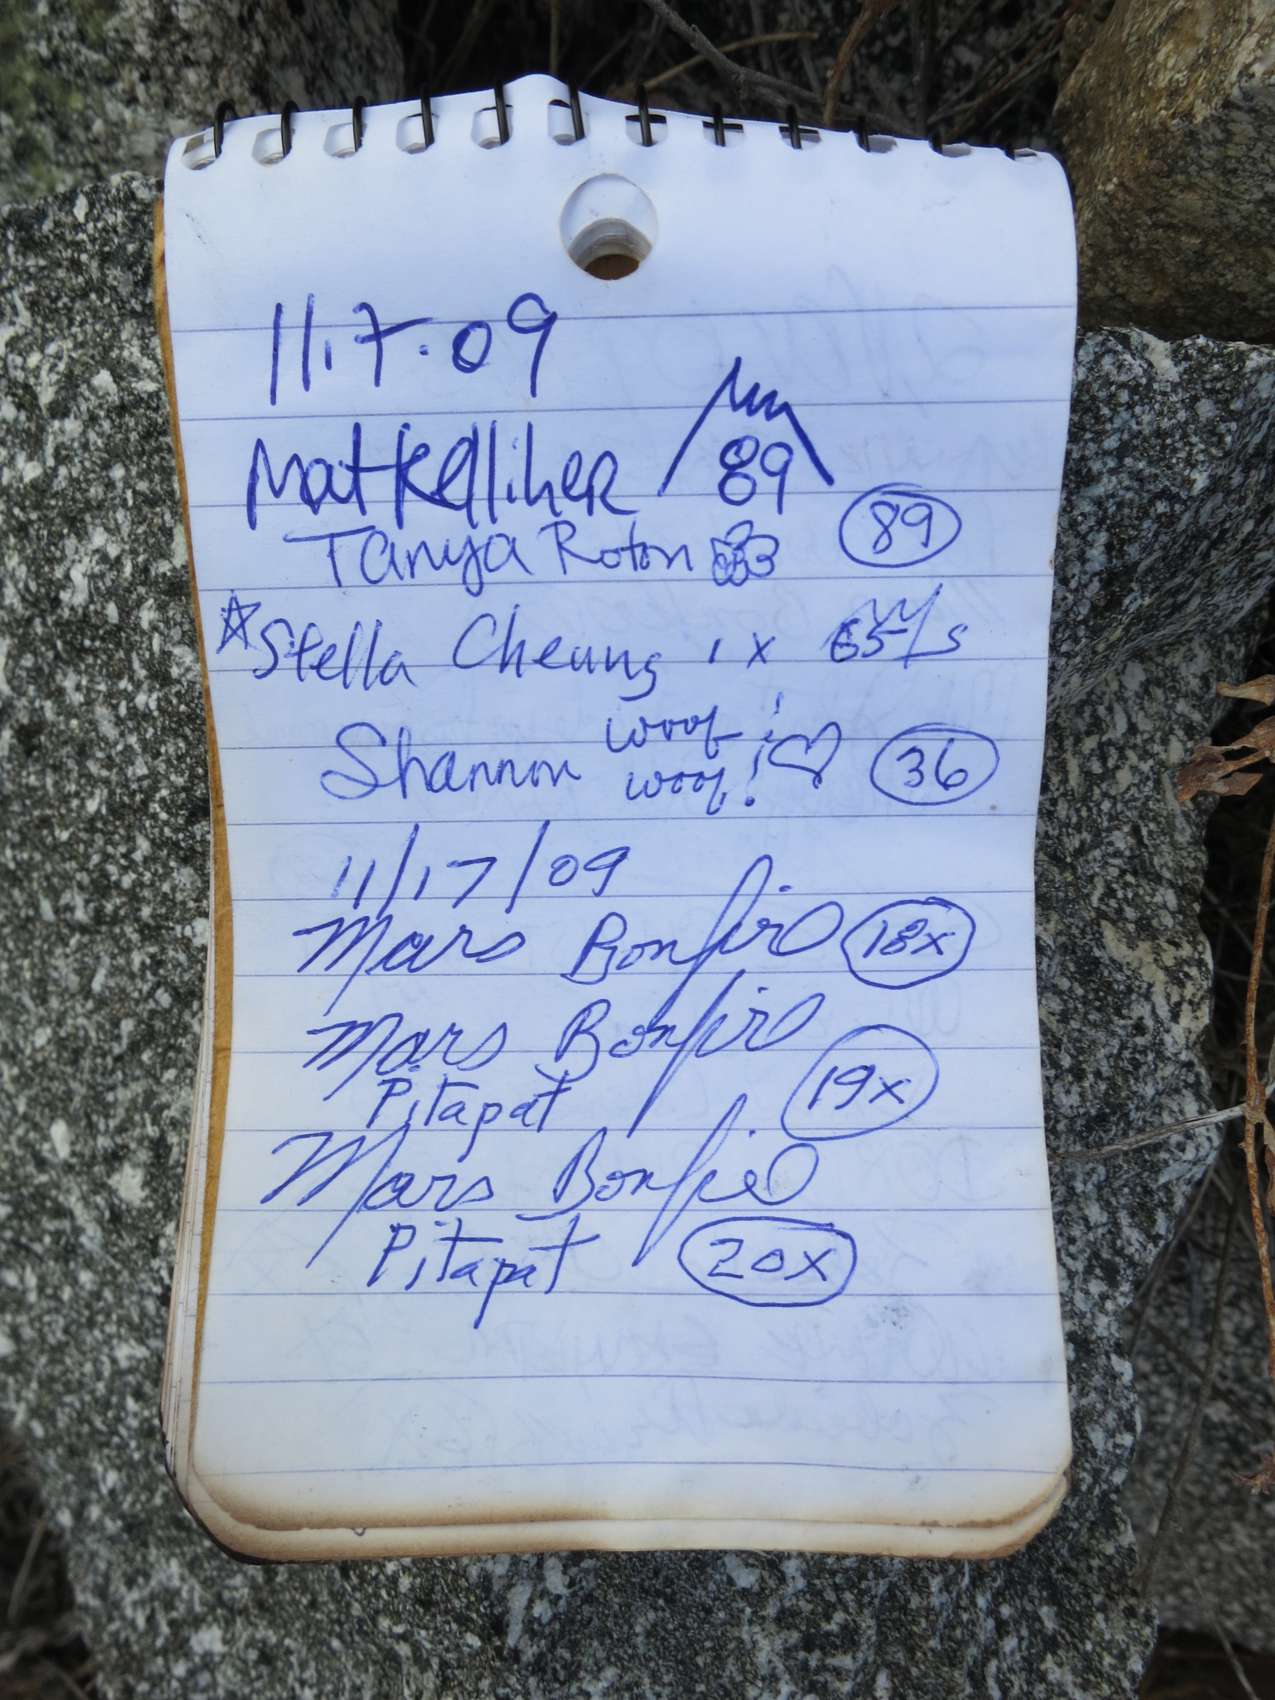 11.7.09
Mat Kelliher 89
Tanya Roton 89
Stella Cheung 1x
Shannon woof! woof! 36
11/17/09
Mars Bonfire 18x
Mars Bonfire
Pitapat 19x
Mars Bonfire
Pitapat 20x